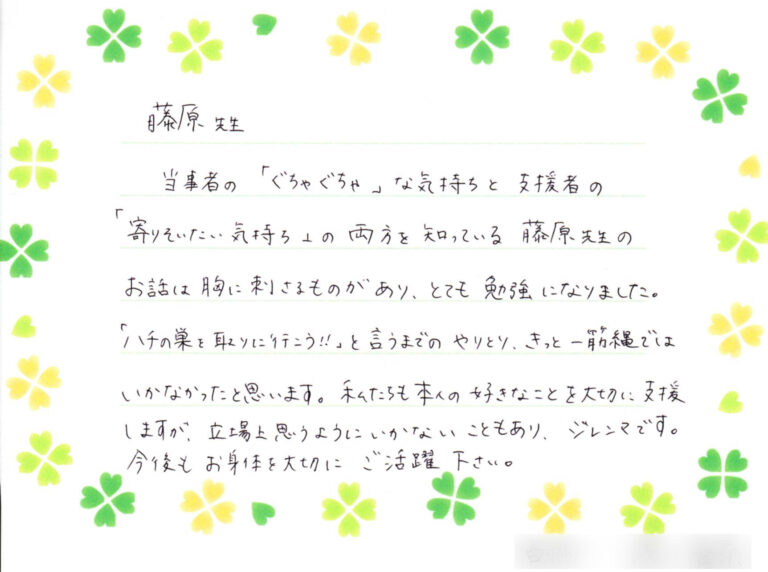 藤原先生
当事者の「ぐちゃぐちゃ」な気持ちと支援者の
「寄りそいたい気持ち」の両方を知っている藤原先生の
お話は胸に刺さるものがあり、とても勉強になりました。
「ハチの巣を取りに行こう!!」と言うまでのやりとり、きっと一筋縄では
いかなかったと思います。私たちも本人の好きなことを大切に支援
しますが、立場上思うようにいかないこともあり、ジレンマです。
今後もお身体を大切にご活躍下さい。